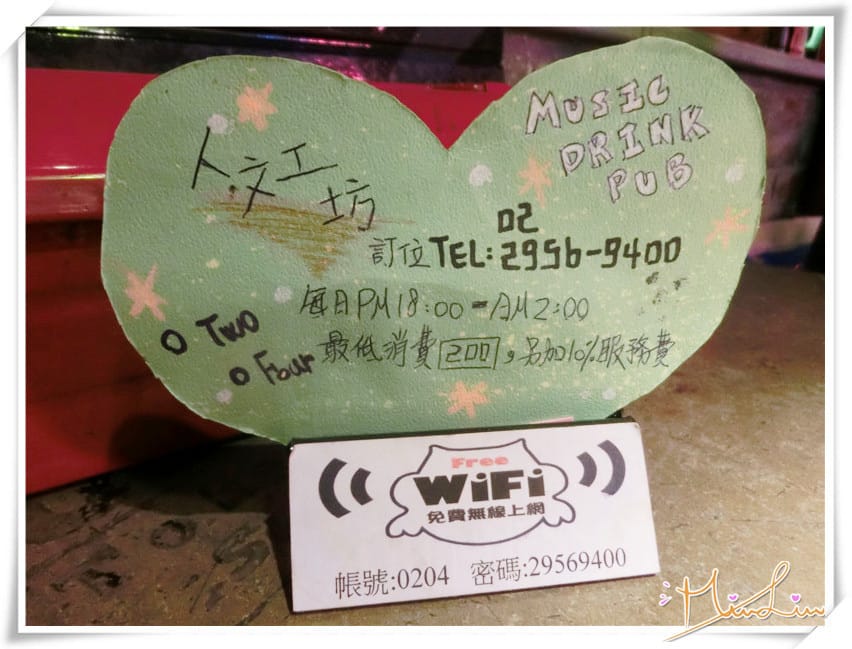 人文工坊
MUSIC
DRINK
PUB
02
訂位TEL:2956-9400
每日PM18:00-AM2:00
最低消費200,另加10%服務費
O Two
O Four
Free
WiFi
免費無線上網
帳號:0204 密碼:29569400